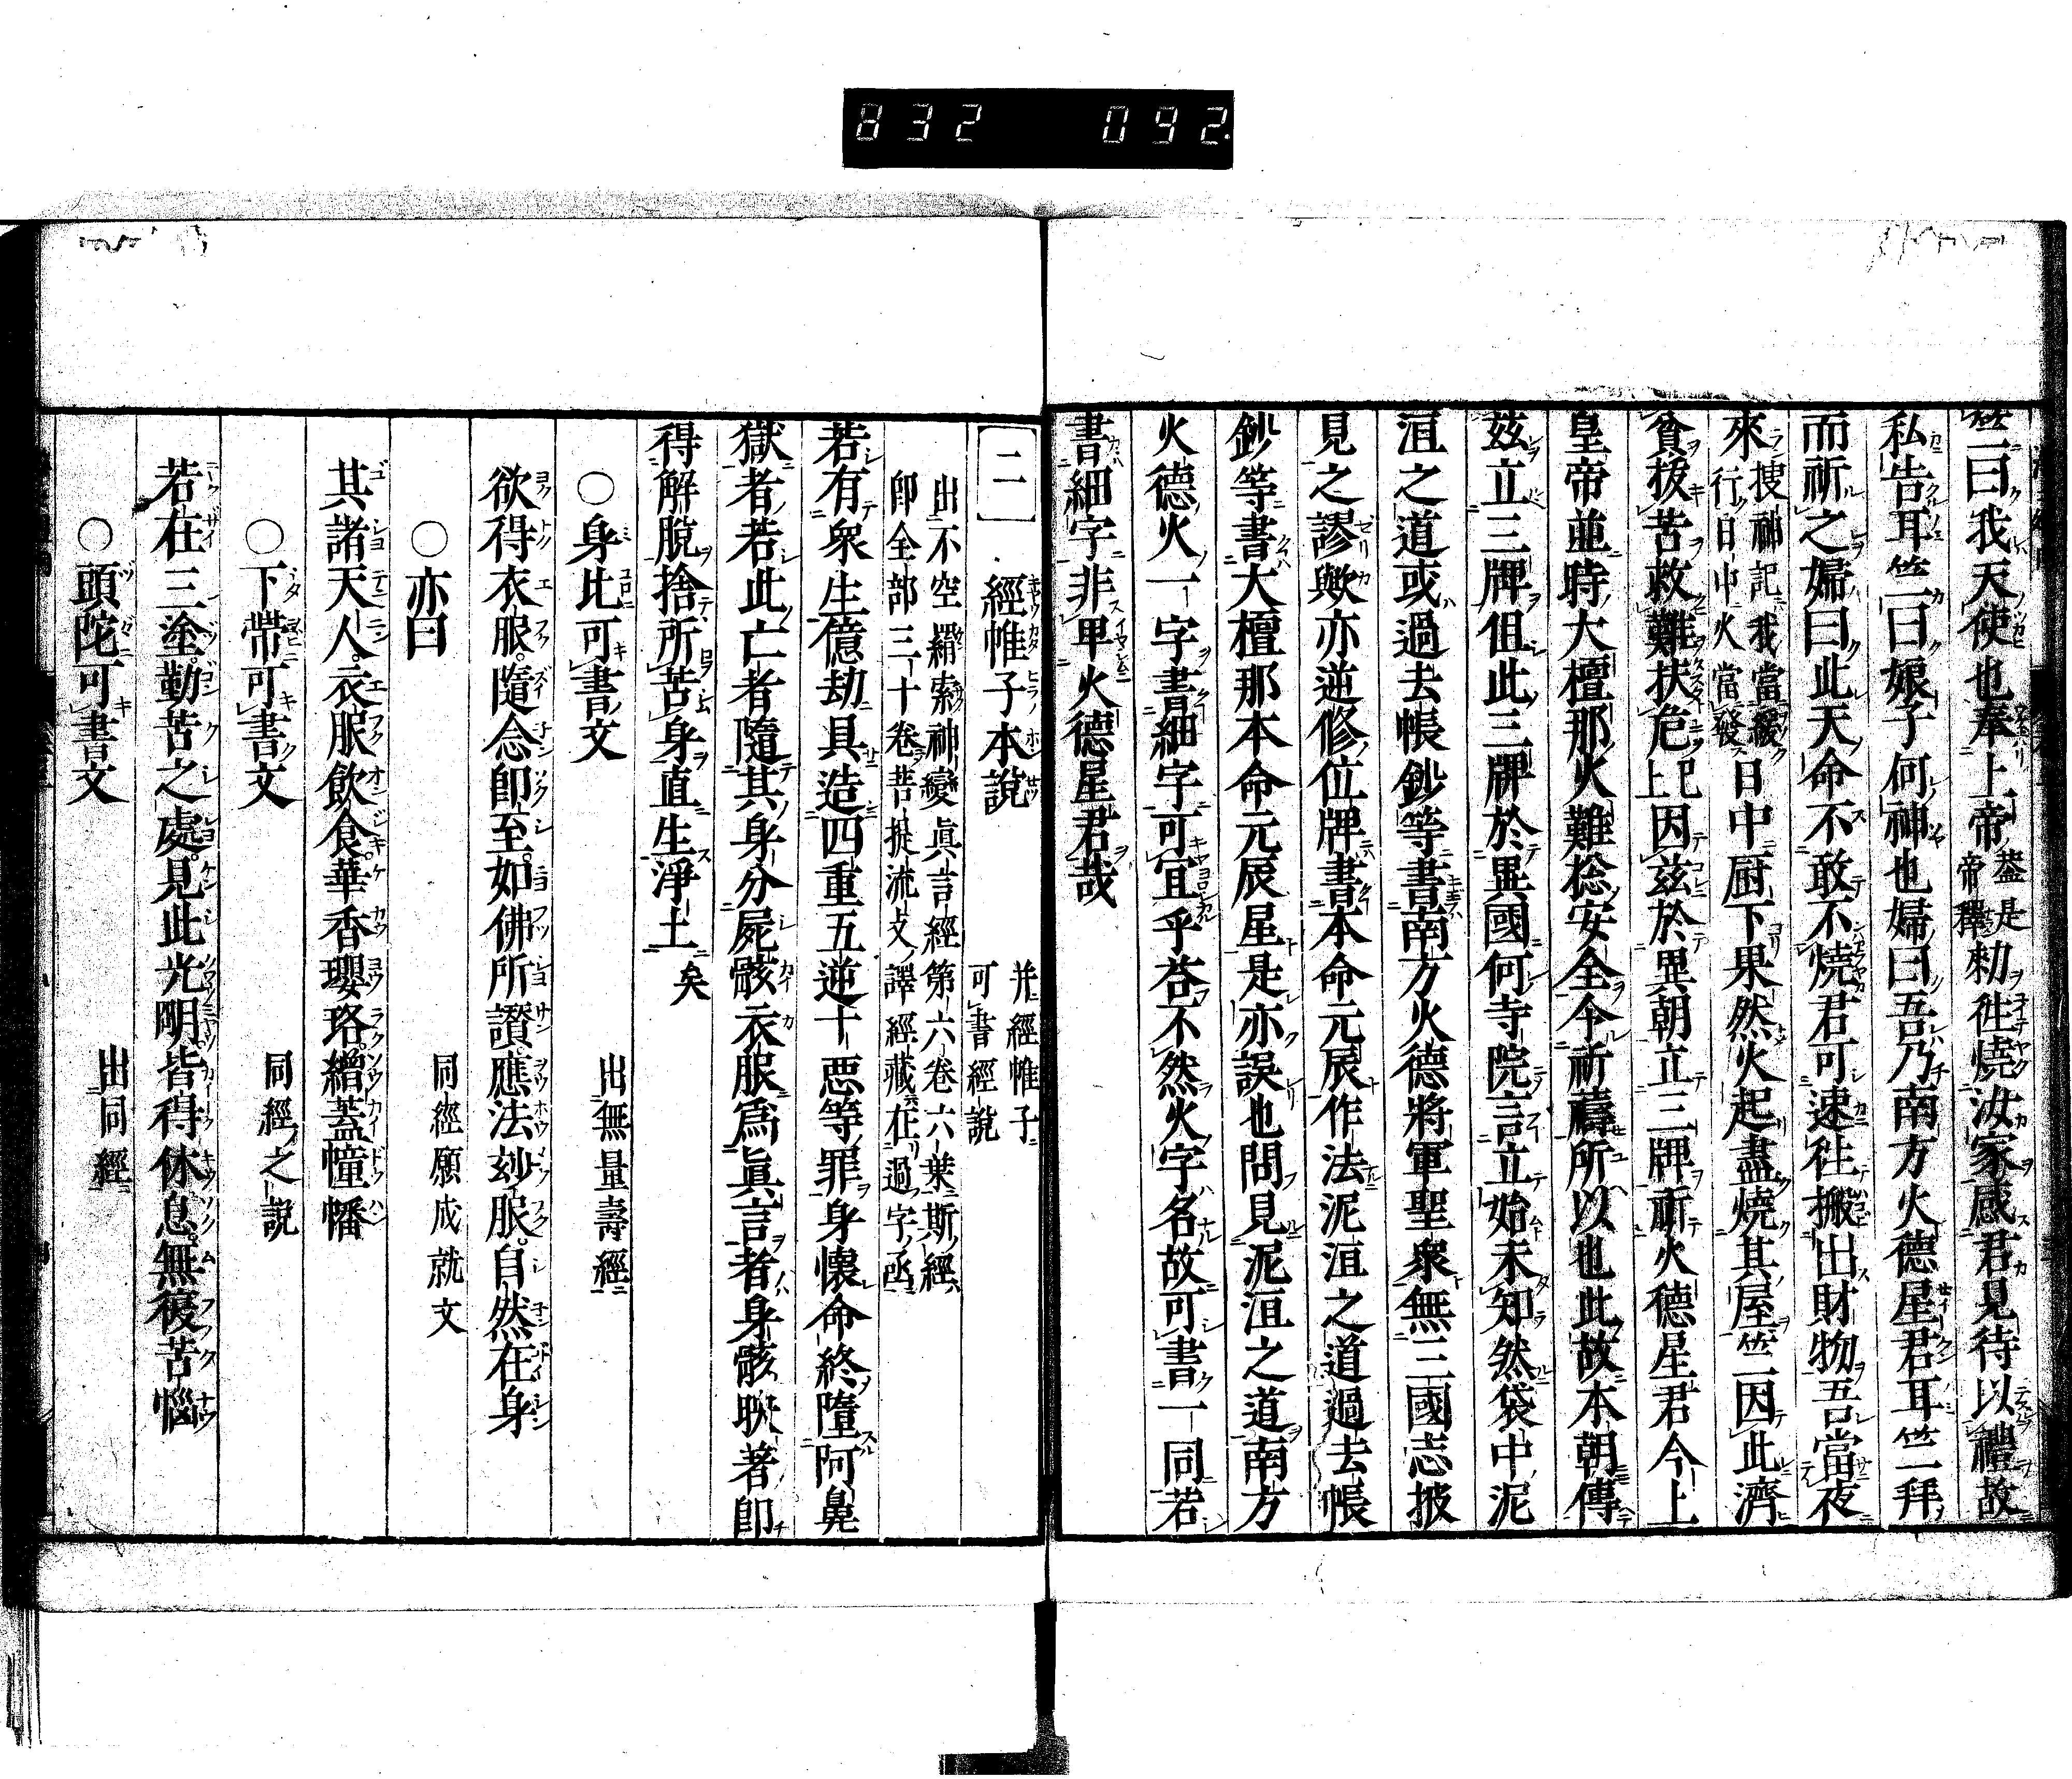 832 092
竺曰我天使也奉上帝蓋是帝釋勅徃燒汝家感君見待以禮故
私告耳竺曰娘子何神也婦曰吾乃南方火德星君耳竺拜
而祈之婦曰此天命不敢不燒君可速徃搬出財物吾當夜
來搜神記我當緩行日中火當發日中厨下果然火起盡燒其屋竺因此濟
貧拔苦救難扶危已上因茲於異朝立三牌祈火德星君今上
皇帝並時大檀那火難稔安全今祈禱所以也此故本朝傳
茲立三牌但此三牌於異國何寺院言立始未知然袋中泥
洹之道或過去帳鈔等書南方火德將軍聖衆無三國志披
見之謬歟亦逆修位牌書本命元辰作法泥洹之道過去帳
鈔等書大檀那本命元辰星是亦誤也問見泥洹之道南方
火德火一字書細字可宜乎荅不然火字名故可書一同若
書細字非甲火德星君哉
二 經帷子本說 并經帷子可書經說
出不空羂索神變眞言經第六卷六葉斯經
卽全部三十卷菩提流支譯經藏在過字函
若有衆生億劫具造四重五逆十惡等罪身懷命終隨阿鼻
獄者若此亡者隨其身分屍骸衣服爲眞言者身骸映著卽
得解脫捨所苦身直生淨土矣
○身比可書文 出無量壽經
欲得衣服隨念卽至如佛所讃應法玅服自然在身
○亦曰 同經願成就文
其諸天人衣服飲食華香瓔珞繒蓋幢幡
○下帶可書文 同經之說
若在三塗勤苦之處見此光明皆得休息無復苦惱
○頭陀可書文 出同經